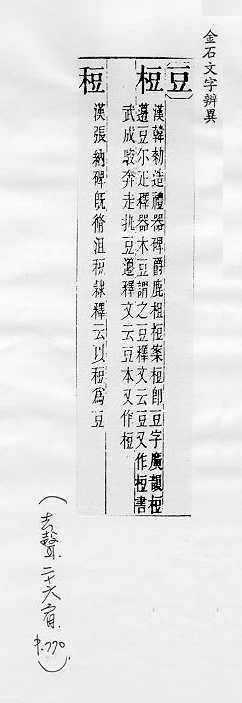 金石文字辨異
豆
梪 漢韓勑造禮器碑爵鹿柤梪案梪即豆字廣韻梪
籩豆尔疋釋器木豆謂之豆釋文云豆又作梪書
武成駿奔走執豆籩釋文云豆本又作梪
䄈 漢張納碑旣脩沮䄈隸釋云以䄈爲豆
(去聲.二十六宥.
P.770)